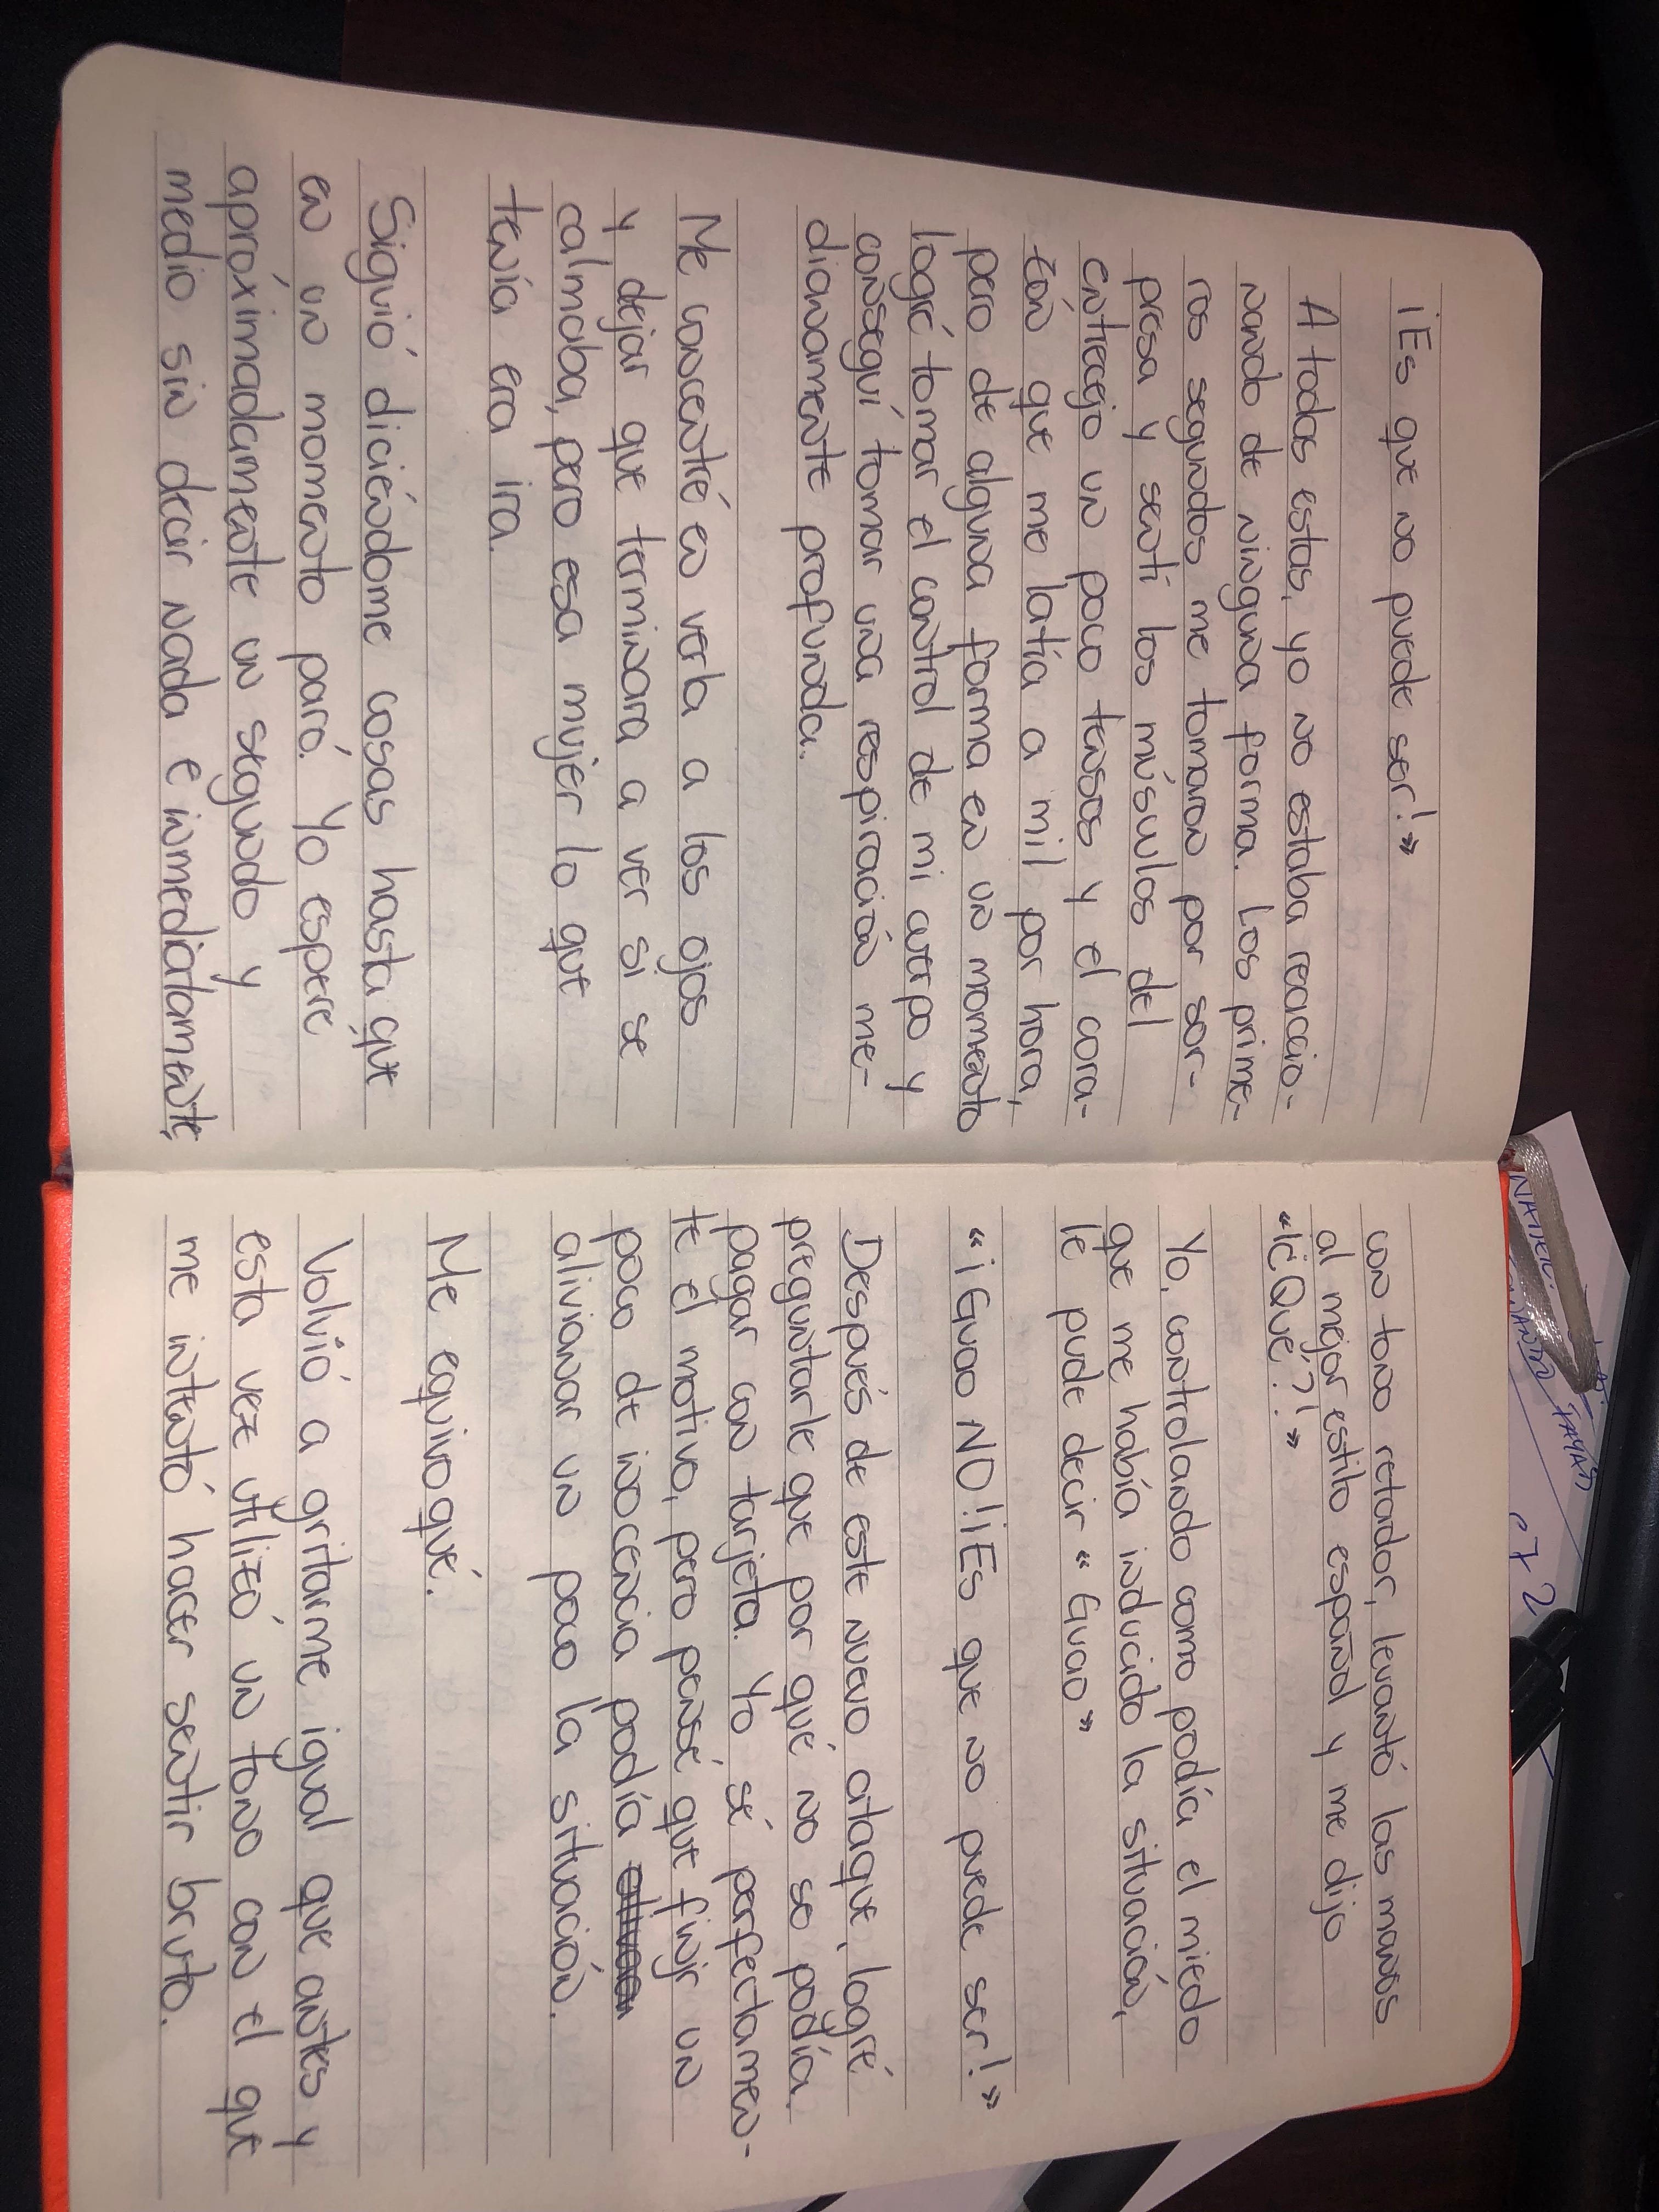 ¡Es que no puede ser!»
A todas estas, yo no estaba reaccio-
nando de ninguna forma. Los prime-
ros segundos me tomaron por sor-
presa y sentí los músculos del
entrecejo un poco tensos y el cora-
zón que me latía a mil por hora,
pero de alguna forma en un momento
logré tomar el control de mi cuerpo y
conseguí tomar una respiración me-
dianamente profunda.
Me concentré en verla a los ojos
y dejar que terminara a ver si se
calmaba, pero esa mujer lo que
tenía era ira.
Siguió diciéndome cosas hasta que
en un momento paró. Yo esperé
apróximadamente un segundo y
medio sin decir nada e inmediatamente,
con tono retador, levantó las manos
al mejor estilo español y me dijo
«¡¿Qué?!»
Yo, controlando como podía el miedo
que me había inducido la situación,
le pude decir «Guao»
«¡Guao NO! ¡Es que no puede ser!»
Después de este nuevo ataque, logré
preguntarle que por qué no se podía
pagar con tarjeta. Yo sé perfectamen-
te el motivo, pero pensé que fingir un
poco de inocencia podía
alivianar un poco la situación.
Me equivoqué.
Volvió a gritarme igual que antes y
esta vez utilizó un tono con el que
me intentó hacer sentir bruto.